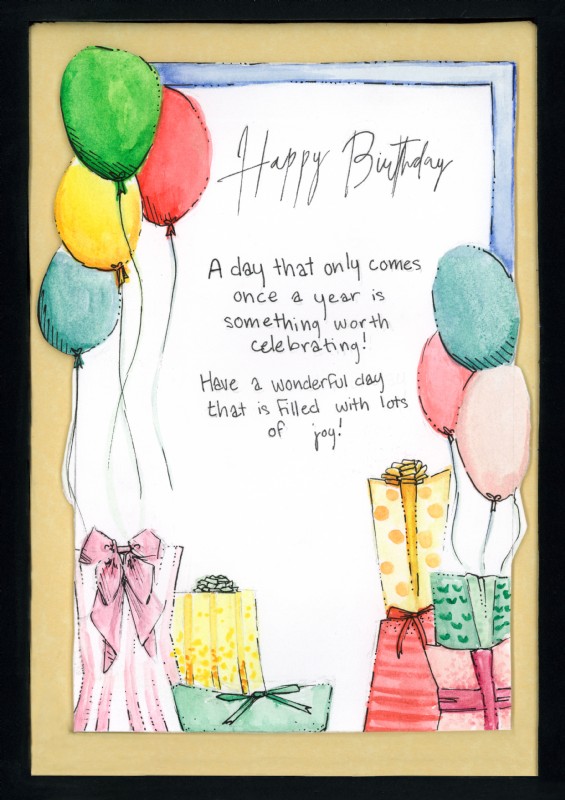 Happy Birthday
A day that only comes
once a year is
something worth
celebrating!
Have a wonderful day
that is filled with lots
of joy!